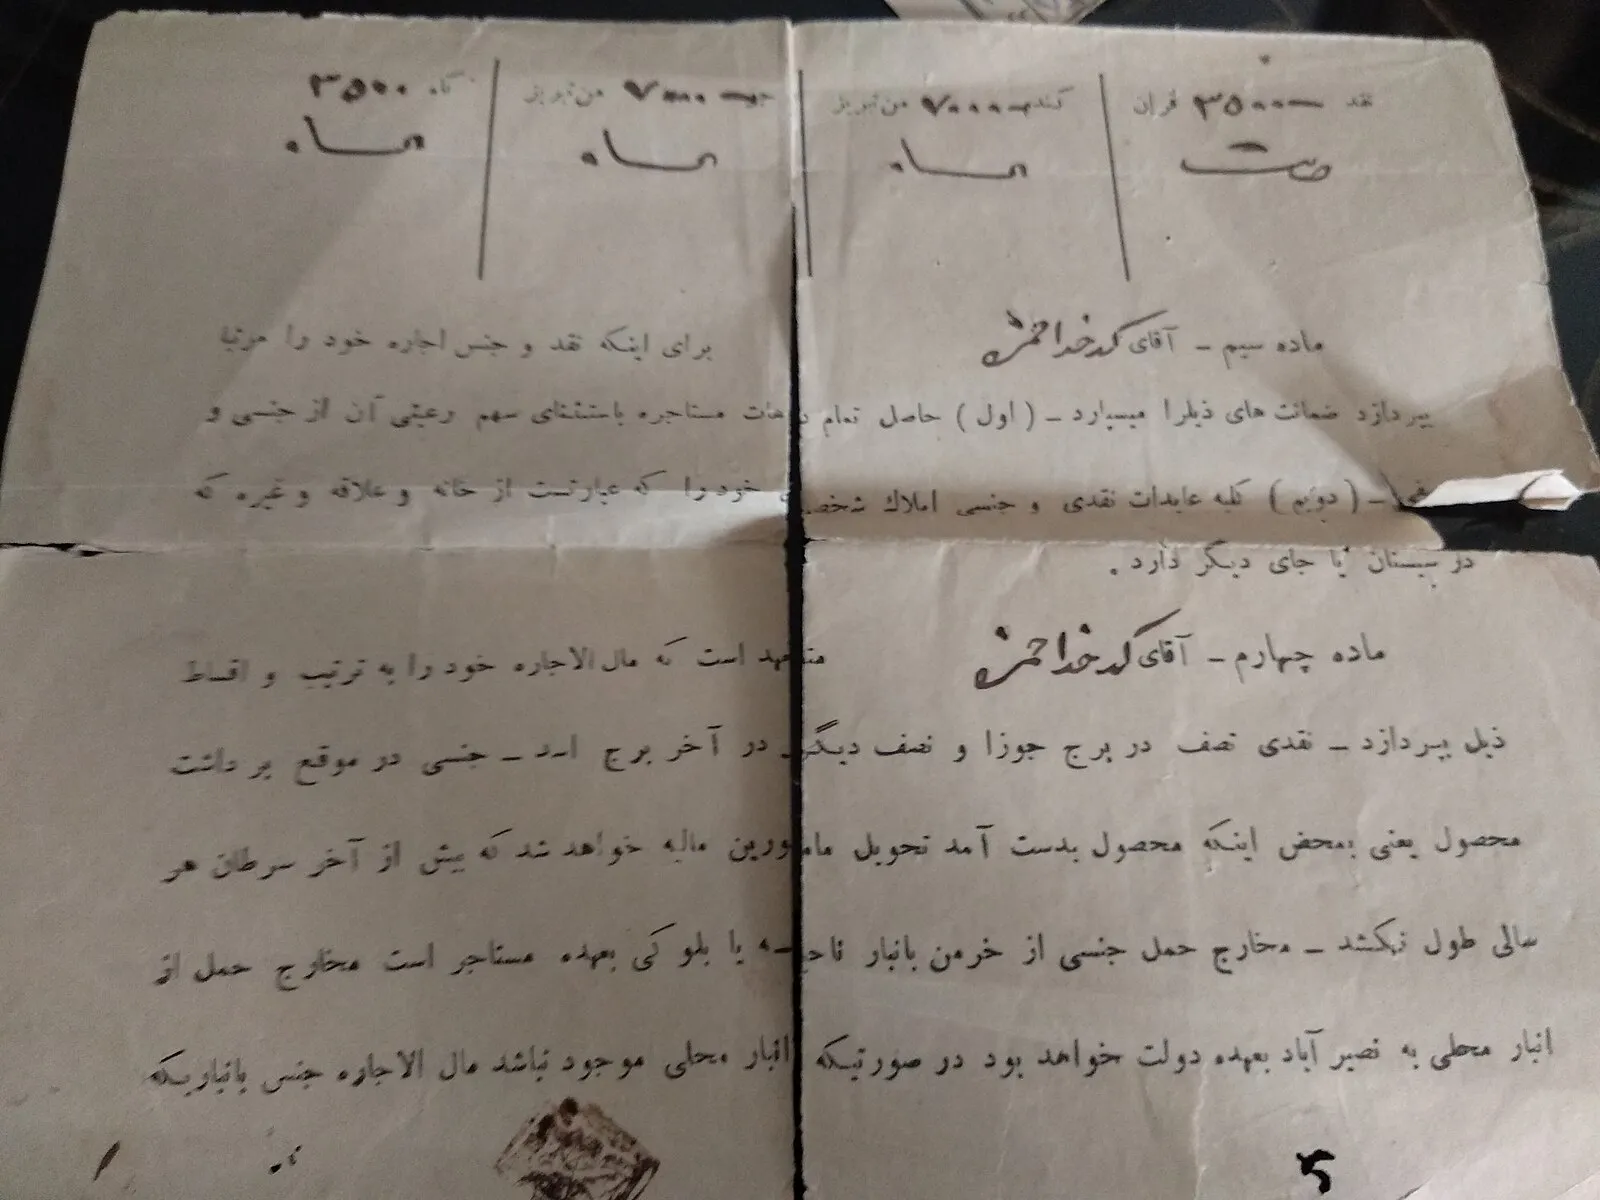 نقد ۳۵۰۰۰ قران
گندم ۷۰۰۰ من تبریز
جو ۷۰۰۰ من تبریز
کاه ۳۵۰۰
ماده سیم ـ آقای کدخدا حمزه برای اینکه نقد و جنس اجاره خود را مرتبا
بپردازد ضمانت های ذیلرا میسپارد ـ ( اول ) حاصل تمام دهات مستاجره باستثنای سهم رعیتی آن از جنسی و
ـ ( دویم ) کلیه عایدات نقدی و جنسی املاك شخصی خود را که عبارتست از خانه و علاقه و غیره که
در سیستان یا جای دیگر دارد .
ماده چهارم ـ آقای کدخدا حمزه متعهد است که مال الاجاره خود را به ترتیب و اقساط
ذیل بپردازد ـ نقدی نصف در برج جوزا و نصف دیگر در آخر برج اسد ـ جنسی در موقع بر داشت
محصول یعنی بمحض اینکه محصول بدست آمد تحویل مامورین مالیه خواهد شد که بیش از آخر سرطان هر
سالی طول نکشد ـ مخارج حمل جنسی از خرمن بانبار ناحیه یا بلو کی بعهده مستاجر است مخارج حمل از
انبار محلی به نصیر آباد بعهده دولت خواهد بود در صورتیکه انبار محلی موجود نباشد مال الاجاره جنس بانباریکه